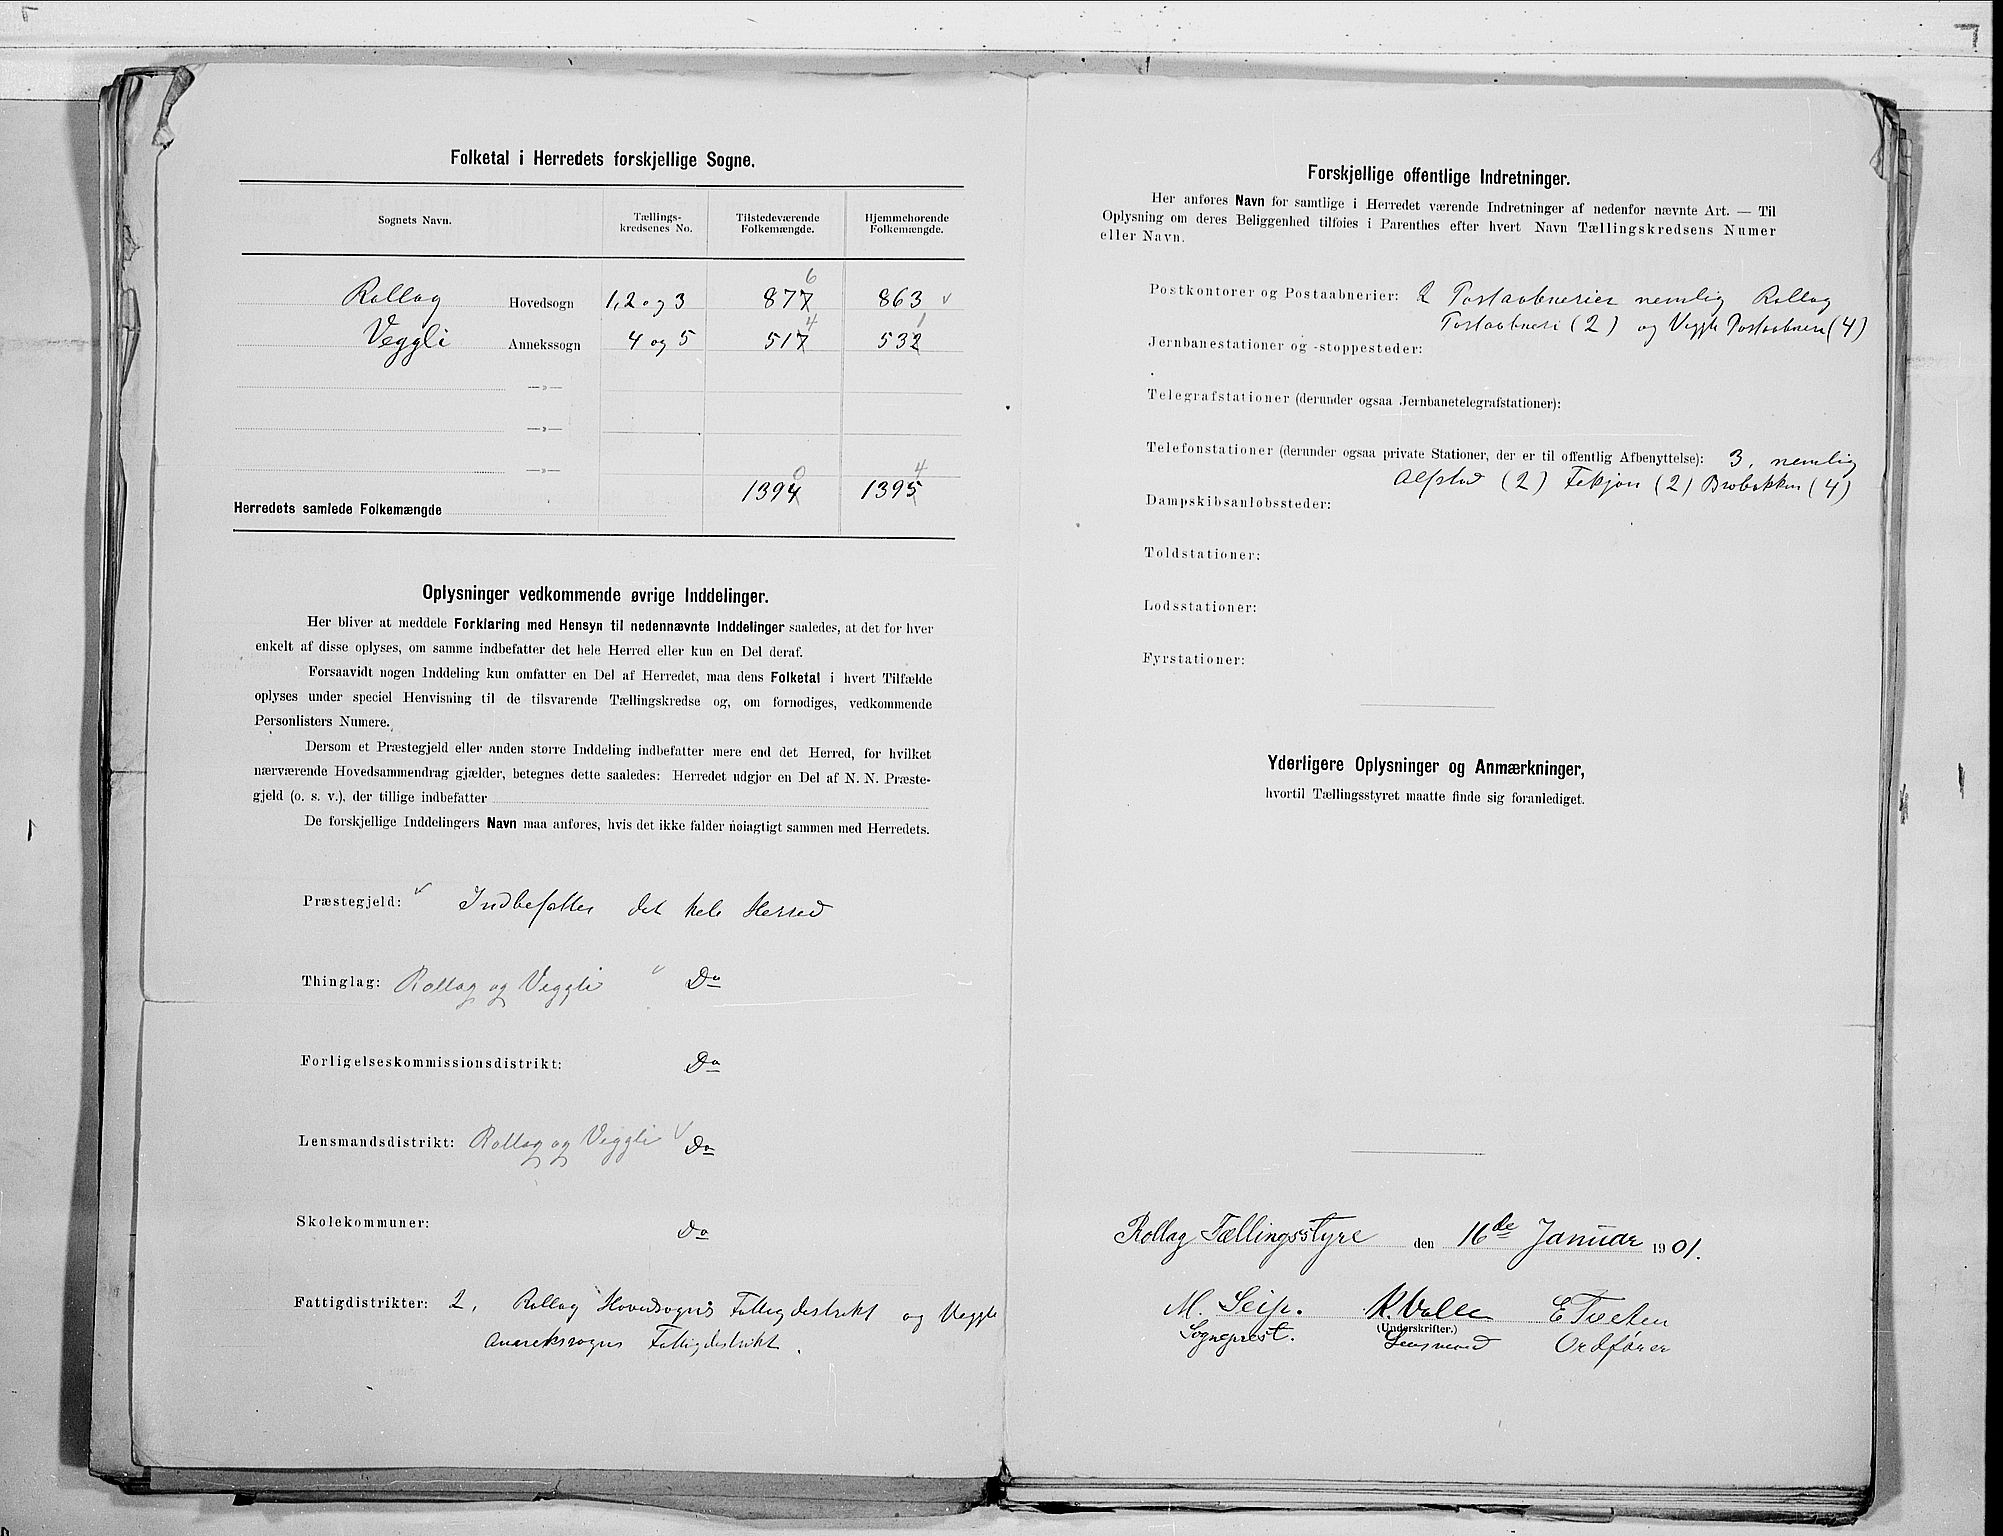 Folketal i Herredets forskjellige Sogne.
Sognets Navn. Tællings-kredsenes No. Tilstedeværende Folkemængde. Hjemmehørende Folkemængde.
6
Rollag Hovedsogn 1, 2 og 3 877 863
4 1
Veggli Annekssogn 4 og 5 517 532
—„—
—„—
—„—
0 4
1394 1395
Herredets samlede Folkemængde
Oplysninger vedkommende øvrige Inddelinger.
Her bliver at meddele Forklaring med Hensyn til nedennævnte Inddelinger saaledes, at det for hver
enkelt af disse oplyses, om samme indbefatter det hele Herred eller kun en Del deraf.
Forsaavidt nogen Inddeling kun omfatter en Del af Herredet, maa dens Folketal i hvert Tilfælde
oplyses under speciel Henvisning til de tilsvarende Tællingskredse og, om fornødiges, vedkommende
Personlisters Numere.
Dersom et Præstegjeld eller anden større Inddeling indbefatter mere end det Herred, for hvilket
nærværende Hovedsammendrag gjælder, betegnes dette saaledes: Herredet udgjør en Del af N. N. Præste-
gjeld (o. s. v.), der tillige indbefatter
De forskjellige Inddelingers Navn maa anføres, hvis det ikke falder nøiagtigt sammen med Herredets.
Præstegjeld: Indbefatter det hele Herred
Thinglag: Rollag og Veggli Do
Forligelseskommissionsdistrikt: Do
Lensmandsdistrikt: Rollag og Veggli Do
Skolekommuner: Do
Fattigdistrikter: 2, Rollag Hovedsogns Fattigdistrikt og Veggli
Annekssogns Fattigdistrikt.
Forskjellige offentlige Indretninger.
Her anføres Navn for samtlige i Herredet værende Indretninger af nedenfor nævnte Art. — Til
Oplysning om deres Beliggenhed tilføies i Parenthes efter hvert Navn Tællingskredsens Numer
eller Navn.
Postkontorer og Postaabnerier: 2 Postaabnerier nemlig Rollag
Postaabneri (2) og Veggli Postaabneri (4)
Jernbanestationer og -stoppesteder:
Telegrafstationer (derunder ogsaa Jernbanetelegrafstationer):
Telefonstationer (derunder ogsaa private Stationer, der er til offentlig Afbenyttelse): 3, nemlig
Alfstad (2) Fekjan (2) Brobakken (4)
Dampskibsanløbssteder:
Toldstationer:
Lodsstationer:
Fyrstationer:
Yderligere Oplysninger og Anmærkninger,
hvortil Tællingsstyret maatte finde sig foranlediget.
Rollag Tællingsstyre den 16de Januar 1901.
M. Seip. K. Valle E Tveten
(Underskrifter.)
Sogneprest. Lensmand Ordfører